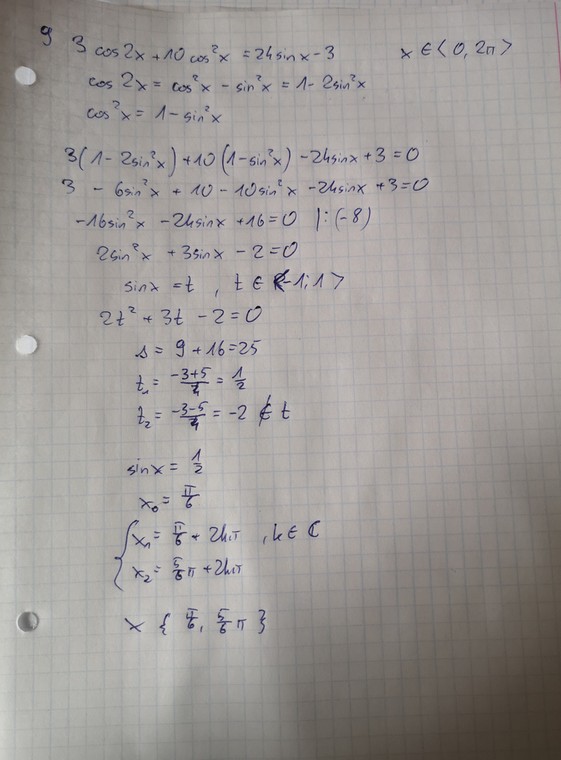 9
3 cos2x + 10 cos²x = 24sinx - 3   x ∈ ⟨0, 2π⟩
cos 2x = cos²x - sin²x = 1 - 2sin²x
cos²x = 1 - sin²x
3(1 - 2sin²x) + 10(1 - sin²x) - 24sinx + 3 = 0
3 - 6sin²x + 10 - 10sin²x - 24sinx + 3 = 0
-16sin²x - 24sinx + 16 = 0 |:(-8)
2sin²x + 3sinx - 2 = 0
sinx = t , t ∈ ⟨-1;1⟩
2t² + 3t - 2 = 0
Δ = 9 + 16 = 25
t₁ = (-3+5)/4 = 1/2
t₂ = (-3-5)/4 = -2 ∉ t
sinx = 1/2
x₀ = π/6
x₁ = π/6 + 2kπ , k ∈ C
x₂ = 5/6 π + 2kπ
x { π/6, 5/6 π }